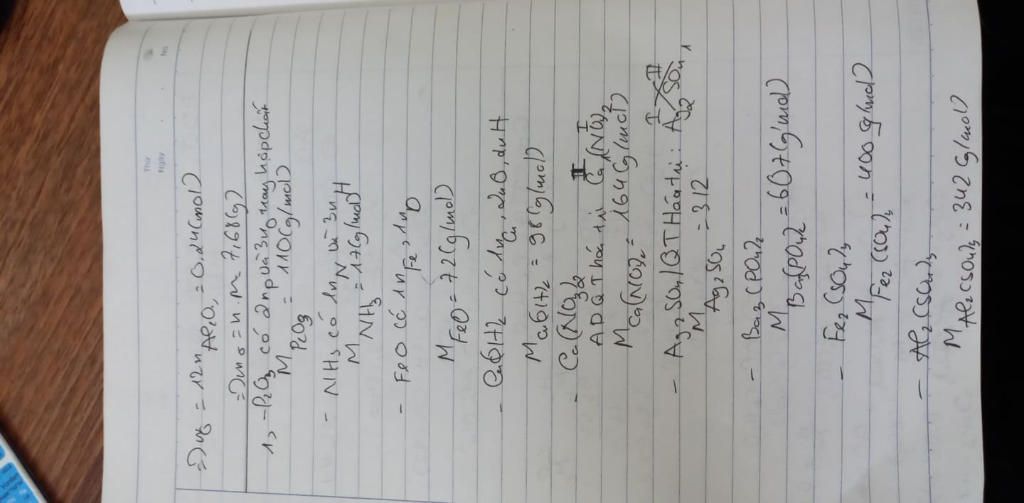 Thứ
Ngày
No
⇒ n₈ = 12 n Al₂O₃ = 0,24 (mol)
⇒ m₈ = n.M = 7,68 (g)
1, - P₂O₃ có 2 n P và 3 n O trong hợp chất
M P₂O₃ = 110 (g/mol)
- NH₃ có 1n N và 3n H
M NH₃ = 17 (g/mol)
- FeO có 1n Fe, 1n O
M FeO = 72 (g/mol)
- Cu(OH)₂ có 1n Cu, 2nO, 2nH
M Cu(OH)₂ = 98 (g/mol)
- Ca(NO₃)₂
ADQT hoá trị: Ca (NO₃)₂ II I
M Ca(NO₃)₂ = 164 (g/mol)
- Ag₂SO₄ / QT Hoá trị: Ag₂ SO₄ ₁ I II
M Ag₂SO₄ = 312
- Ba₃(PO₄)₂
M Ba₃(PO₄)₂ = 607 (g/mol)
- Fe₂(SO₄)₃
M Fe₂(SO₄)₃ = 400 (g/mol)
- Al₂(SO₄)₃
M Al₂(SO₄)₃ = 342 g/mol